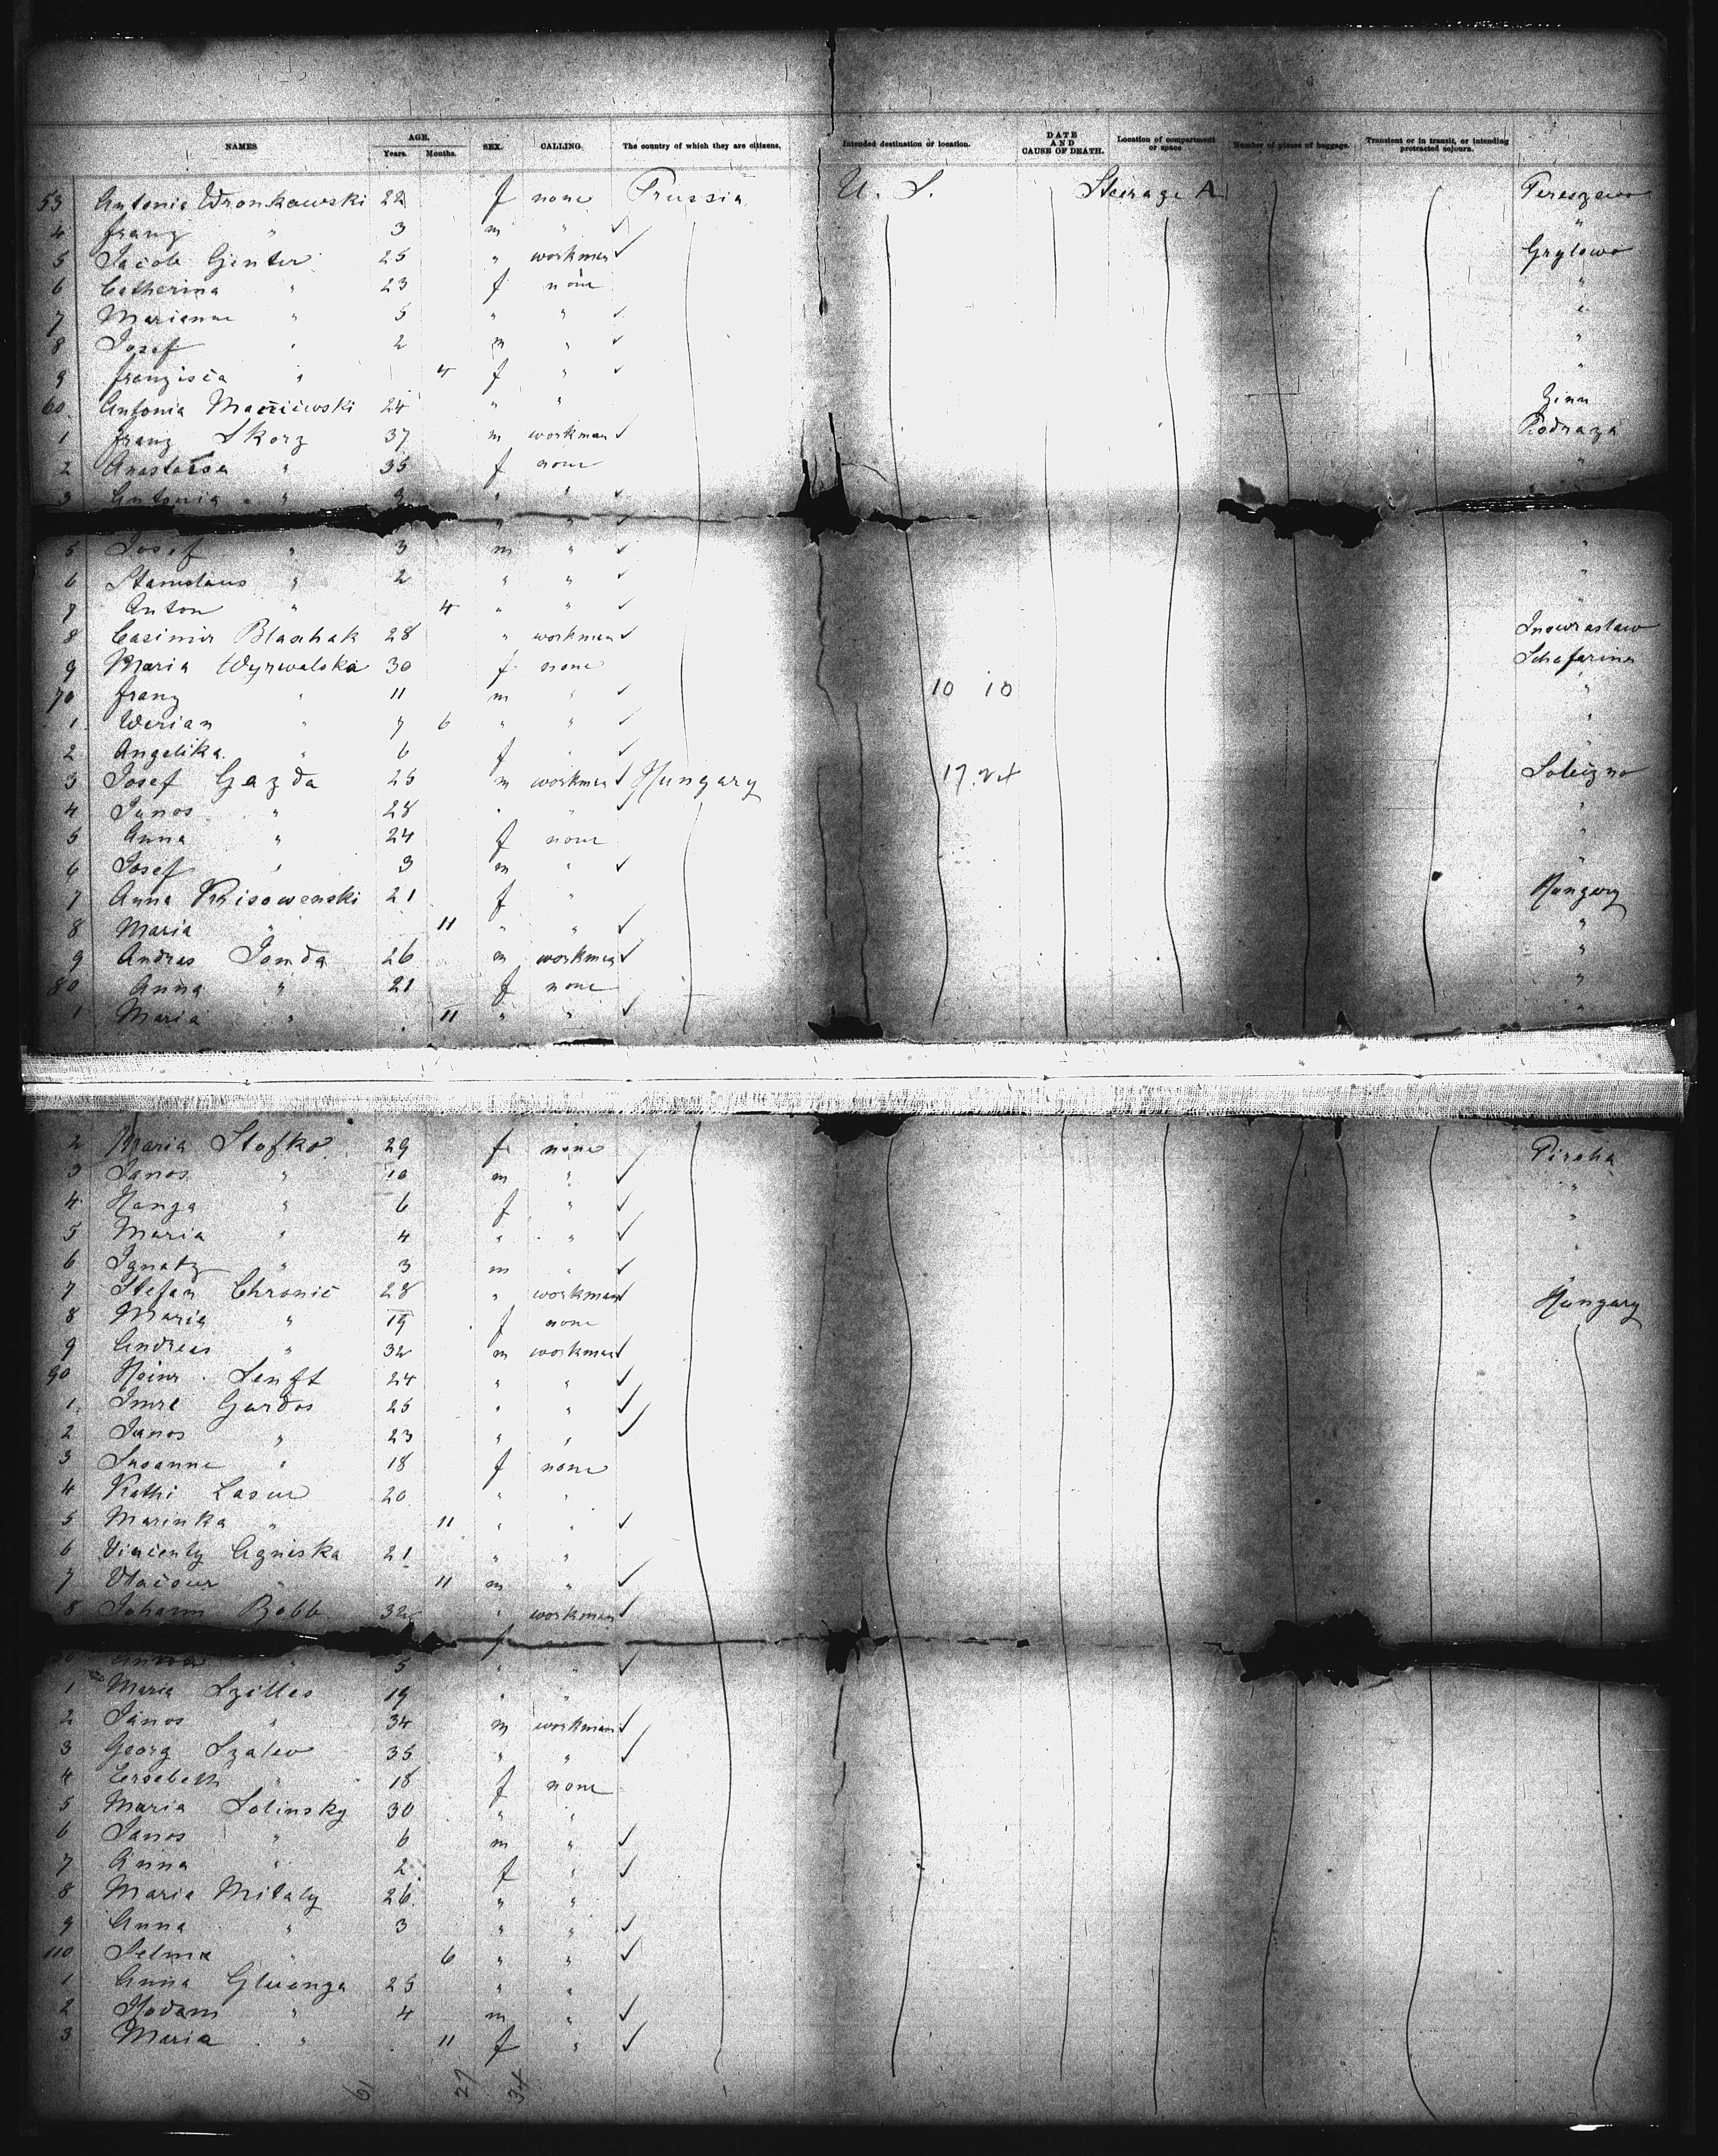 NAMES AGE. Years. Months. SEX. CALLING. The country of which they are citizens. Intended destination or location. DATE AND CAUSE OF DEATH. Location of compartment or space Number of pieces of baggage. Transient or in transit, or intending protracted sojourn.
53 Antonia Wronkowski 22 f none Prussia U. S. Steerage A
4 Franz " 3 m " ✓ "
5 Jacob Ginter 25 " workman ✓ Grylewo
6 Catherina " 23 f none "
7 Marianne " 5 " " ✓ "
8 Josef " 2 m " ✓ "
9 Franzisca " 4 f " ✓ "
60 Antonia 24 " " Zinn
1 Franz Skorz 37 m workman ✓ Podraza
2 Anastasia " 35 f none "
3 Antonia " 9 " " ✓
" " ✓
5 Josef " 3 m " ✓ "
6 Stanislaus " 2 " " ✓ "
7 Anton " 4 " " ✓ "
8 Casimir Blaschak 28 " workman ✓ Inowraslaw
9 Maria Wyrwalska 30 f none Schafarina
70 Franz " 11 m " ✓ 10 10 "
1 " 7 6 " " ✓ "
2 Angelika " 6 f " ✓ "
3 Josef Gazda 25 m workman ✓ Hungary 17
4 Janos " 28 " " ✓ "
5 Anna " 24 f none "
6 Josef " 3 m " ✓ "
7 Anna 21 f " Hungary
8 Maria " 11 " " ✓ "
9 Andras Jonda 26 m workman ✓ "
80 Anna " 21 f none "
1 Maria " 11 " " ✓ "
2 Maria Stofko 29 f none
3 Janos " 10 m " ✓ "
4 Hanza " 6 f " ✓ "
5 Maria " 4 " " ✓ "
6 Ignatz " 3 m " ✓
7 Stefan Chronic 28 " workman ✓ Hungary
8 Maria " 19 f none
9 Andreas " 32 m workman ✓
90 Heinr. Senft 24 " " ✓
1 Imre Gardos 25 " " ✓
2 Janos " 23 " " ✓
3 Susanne " 18 f none
4 Kathi 20 " "
5 Marinka " 11 " " ✓
6 Vincenty Agniska 21 " "
7 " 11 m " ✓
8 Johann Bobb 32 " workman ✓
f
" 5 " " ✓
1 Maria Szilles 19 " "
2 Janos " 34 m workman ✓
3 Georg 35 " " ✓
4 Ersebeth " 18 f none
5 Maria Solinsky 30 " "
6 Janos " 6 m " ✓
7 Anna " 2 f " ✓
8 Maria Mitaly 26 " "
9 Anna " 3 " " ✓
110 Selma " 6 " " ✓
1 Anna Gluonza 25 " "
2 " 4 m " ✓
3 Maria " 11 f " ✓
61 27 34